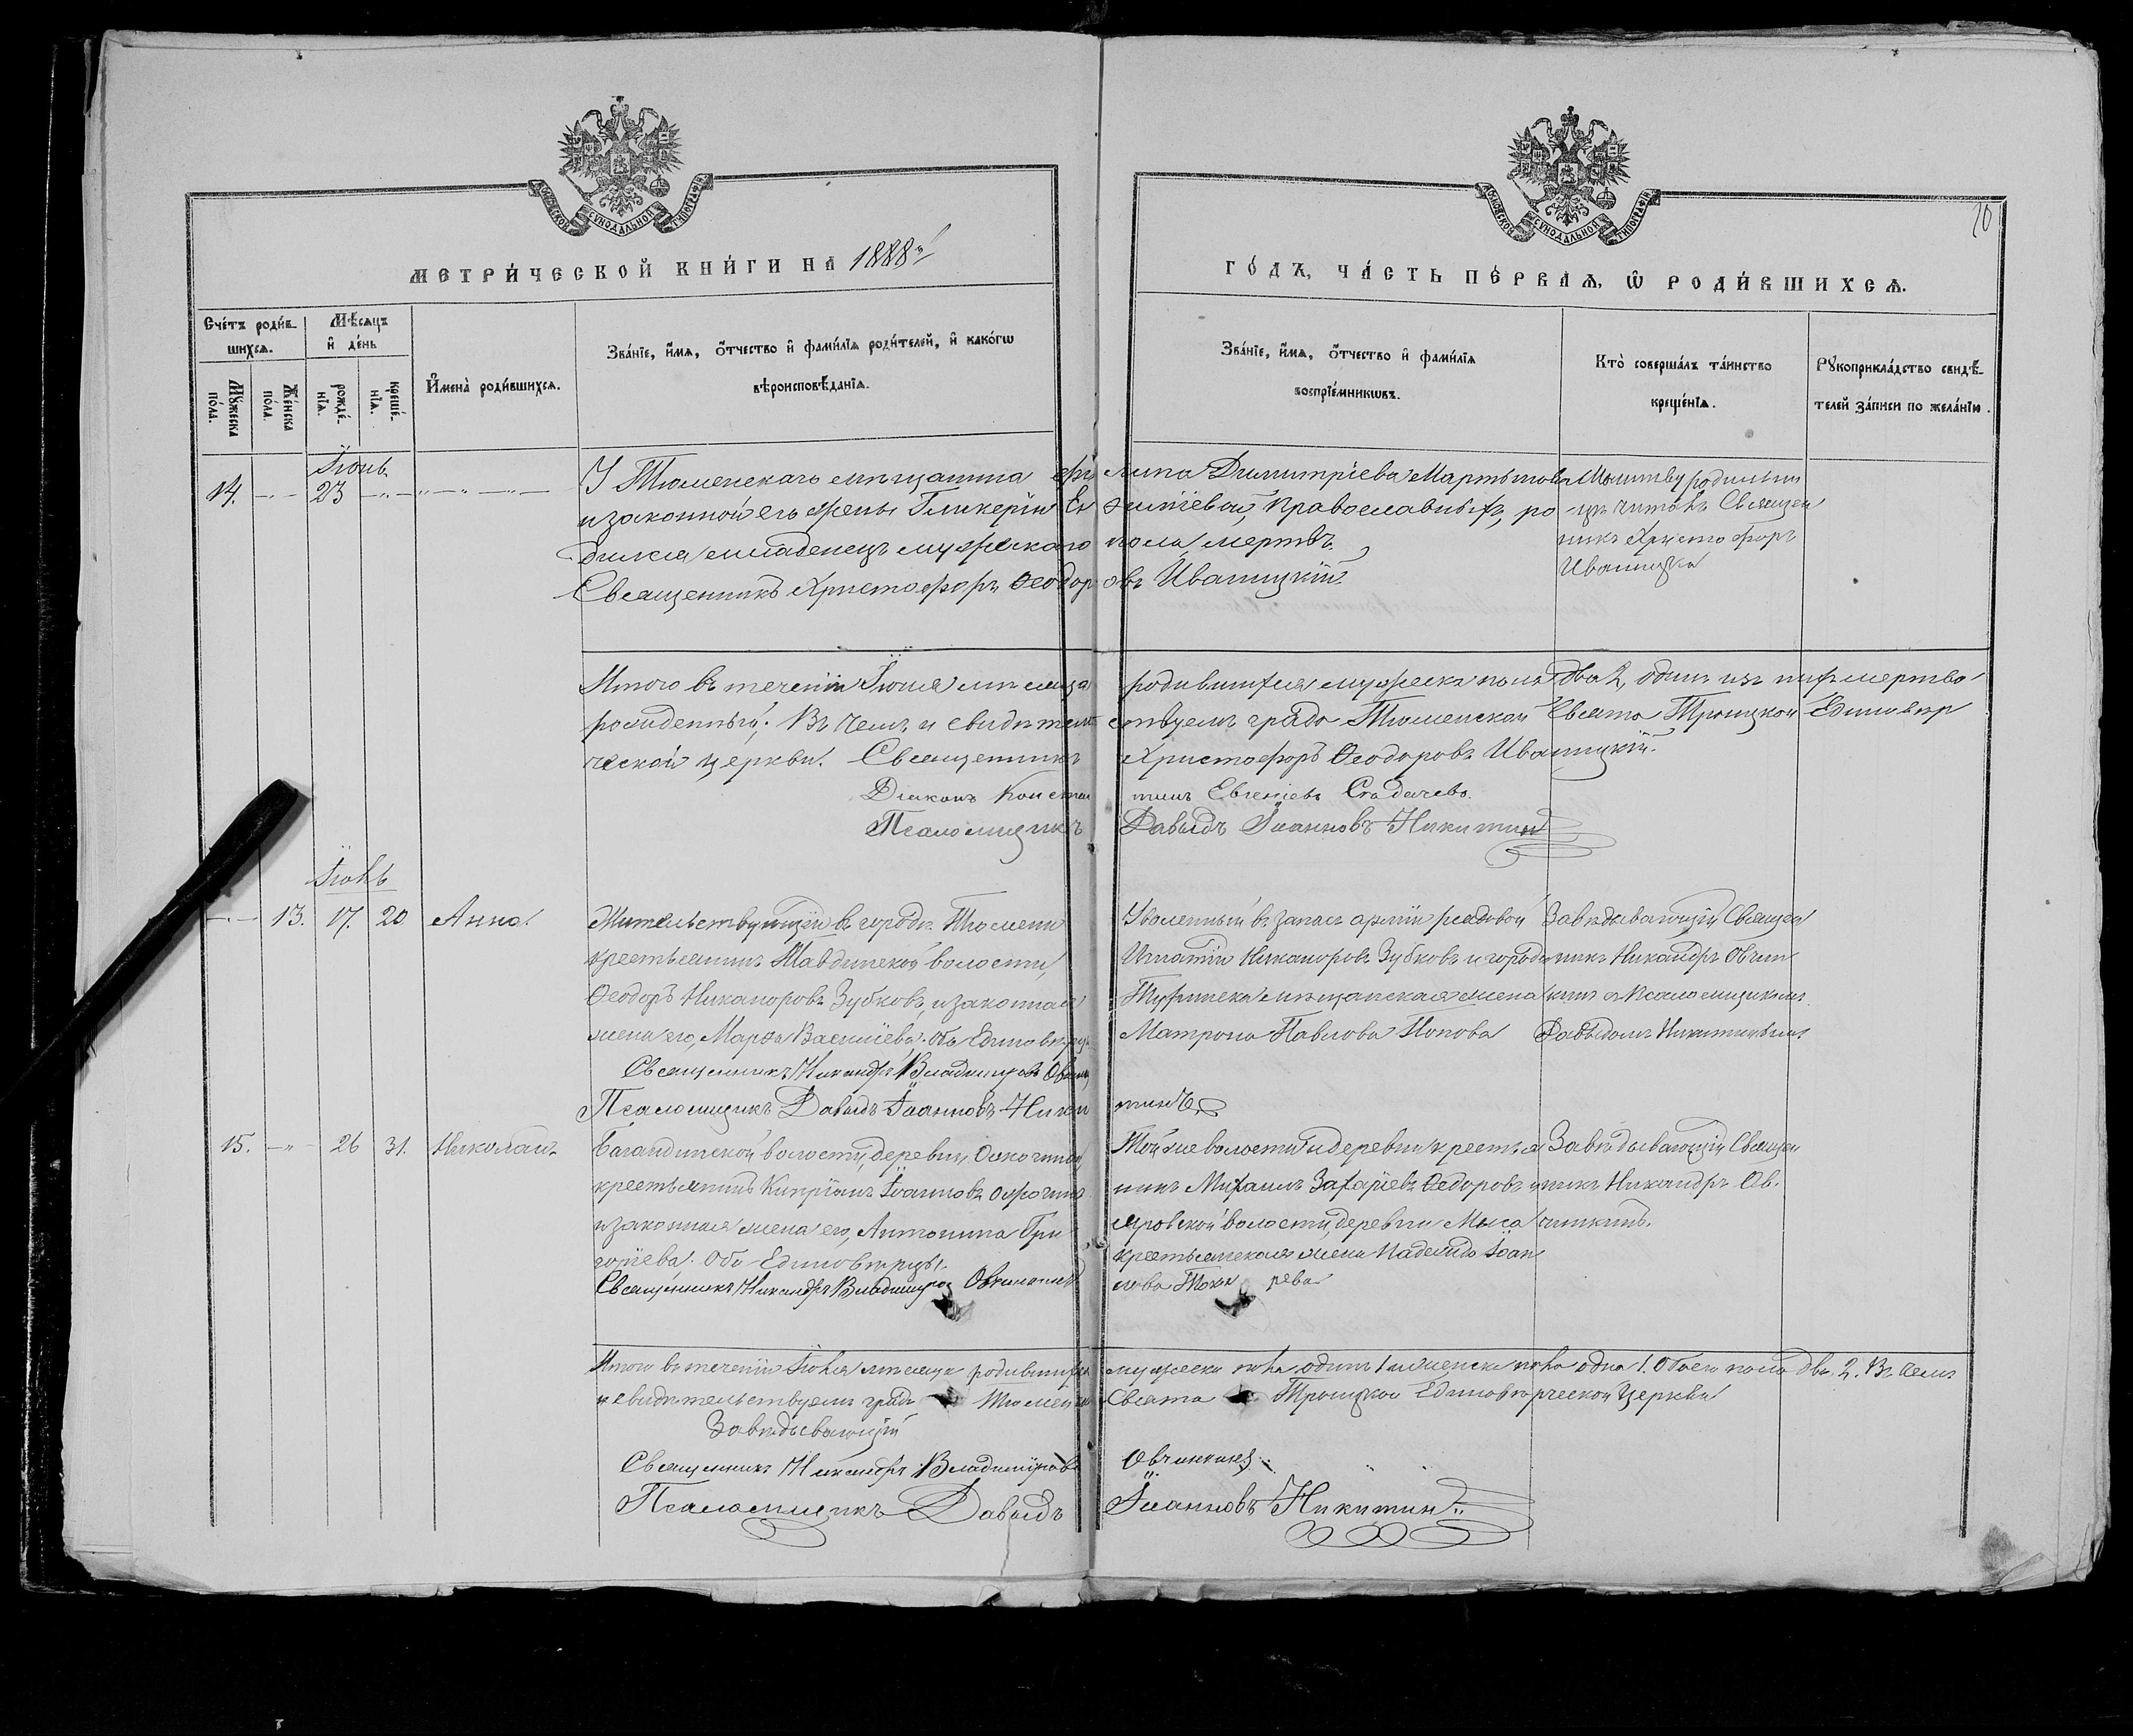 МОСКОВСКОЙ СѴНОДАЛЬНОЙ ТИПОГРАФІИ
МЕТРИ́ЧЕСКОЙ КНИ́ГИ НА 1888й
Сче́тъ роди́вшихсѧ.
Мѣ́сѧцъ и҆ де́нь
Мꙋ́жеска по́ла.
Же́нска по́ла.
рожде́нїѧ.
креще́нїѧ.
И҆мена̀ роди́вшихсѧ.
Зва́нїе, и҆́мѧ, ѻ҆́тчество и҆ фами́лїѧ роди́телей, и҆ како́гѡ
вѣроисповѣ́данїѧ.
МОСКОВСКОЙ СѴНОДАЛЬНОЙ ТИПОГРАФІИ
10
ГО́ДЪ, ЧА́СТЬ ПЕ́РВАѦ, Ѡ҆ РОДИ́ВШИХСѦ.
Зва́нїе, и҆́мѧ, ѻ҆́тчество и҆ фами́лїѧ
воспрїе́мникѡвъ.
Кто̀ соверша́лъ та́инство
креще́нїѧ.
Рꙋкоприкла́дство свидѣ́-
телей за́писи по жела́нїю.
Іюнь
14. 23
У Тюменскаго мѣщанина Фи липа Димитріева Мартынова
и законной его жены Гликеріи родился младенецъ мужскаго пола, мертвъ.
Священникъ Христофоръ Ѳеодоровъ Иваницкій
Молитву родильницѣ читалъ Священникъ Христофоръ
Иваницкій
Итого въ теченіи Іюня мѣсяца родившихся мужеска пола два 2, одинъ изъ нихъ мертво
рожденный; Въ чемъ и свидѣтельствуемъ града Тюменской Свято Троицкой Единовѣр
ческой церкви. Священникъ Христофоръ Ѳеодоровъ Иваницкій
Діаконъ Константинъ Евгеніевъ
Псаломщикъ Давыдъ Іоанновъ Никитинъ
Іюль
13. 17. 20 Анна
Жительствующій въ городѣ Тюмени
крестьянинъ Тавдинской волости,
Ѳеодоръ Никаноровъ Зубковъ, и законная
жена его, Марѳа Васильева. Оба Единовѣрцы
Священникъ Никандръ Владиміровъ
Псаломщикъ Давыдъ Іоанновъ Никитинъ
Уволенный въ запасъ арміи рядовой
Игнатій Никаноровъ Зубковъ и города
Туринска мѣщанская жена
Матрона Павлова Попова
Завѣдывающій Священ
никъ Никандръ Овчин
кинъ съ Псаломщикомъ
Давыдомъ Никитинымъ
15. 26 31. Николай
Богандинской волости, деревни
крестьянинъ Кипріянъ Іоанновъ
и законная жена его, Антонина Гри
горіева. Оба Единовѣрцы.
Священникъ Никандръ Владиміровъ Овчинкинъ
Той же волости и деревни крестья
нинъ Михаилъ Захаріевъ Ѳедоровъ и
волости, деревни Мыса
крестьянская жена Надежда Іоан
нова
Завѣдывающій Священ
никъ Никандръ Ов.
чинкинъ.
Итого въ теченіи Іюля мѣсяца родившихся мужеска пола одинъ 1 и женска пола одна 1. Обоего пола два. 2. Въ чемъ
и свидѣтельствуемъ градо Тюменской Свято Троицкой Единовѣрческой Церкви
Завѣдывающій
Священникъ Никандръ Владиміровъ Овчинкинъ
Псаломщикъ Давыдъ Іоанновъ Никитинъ